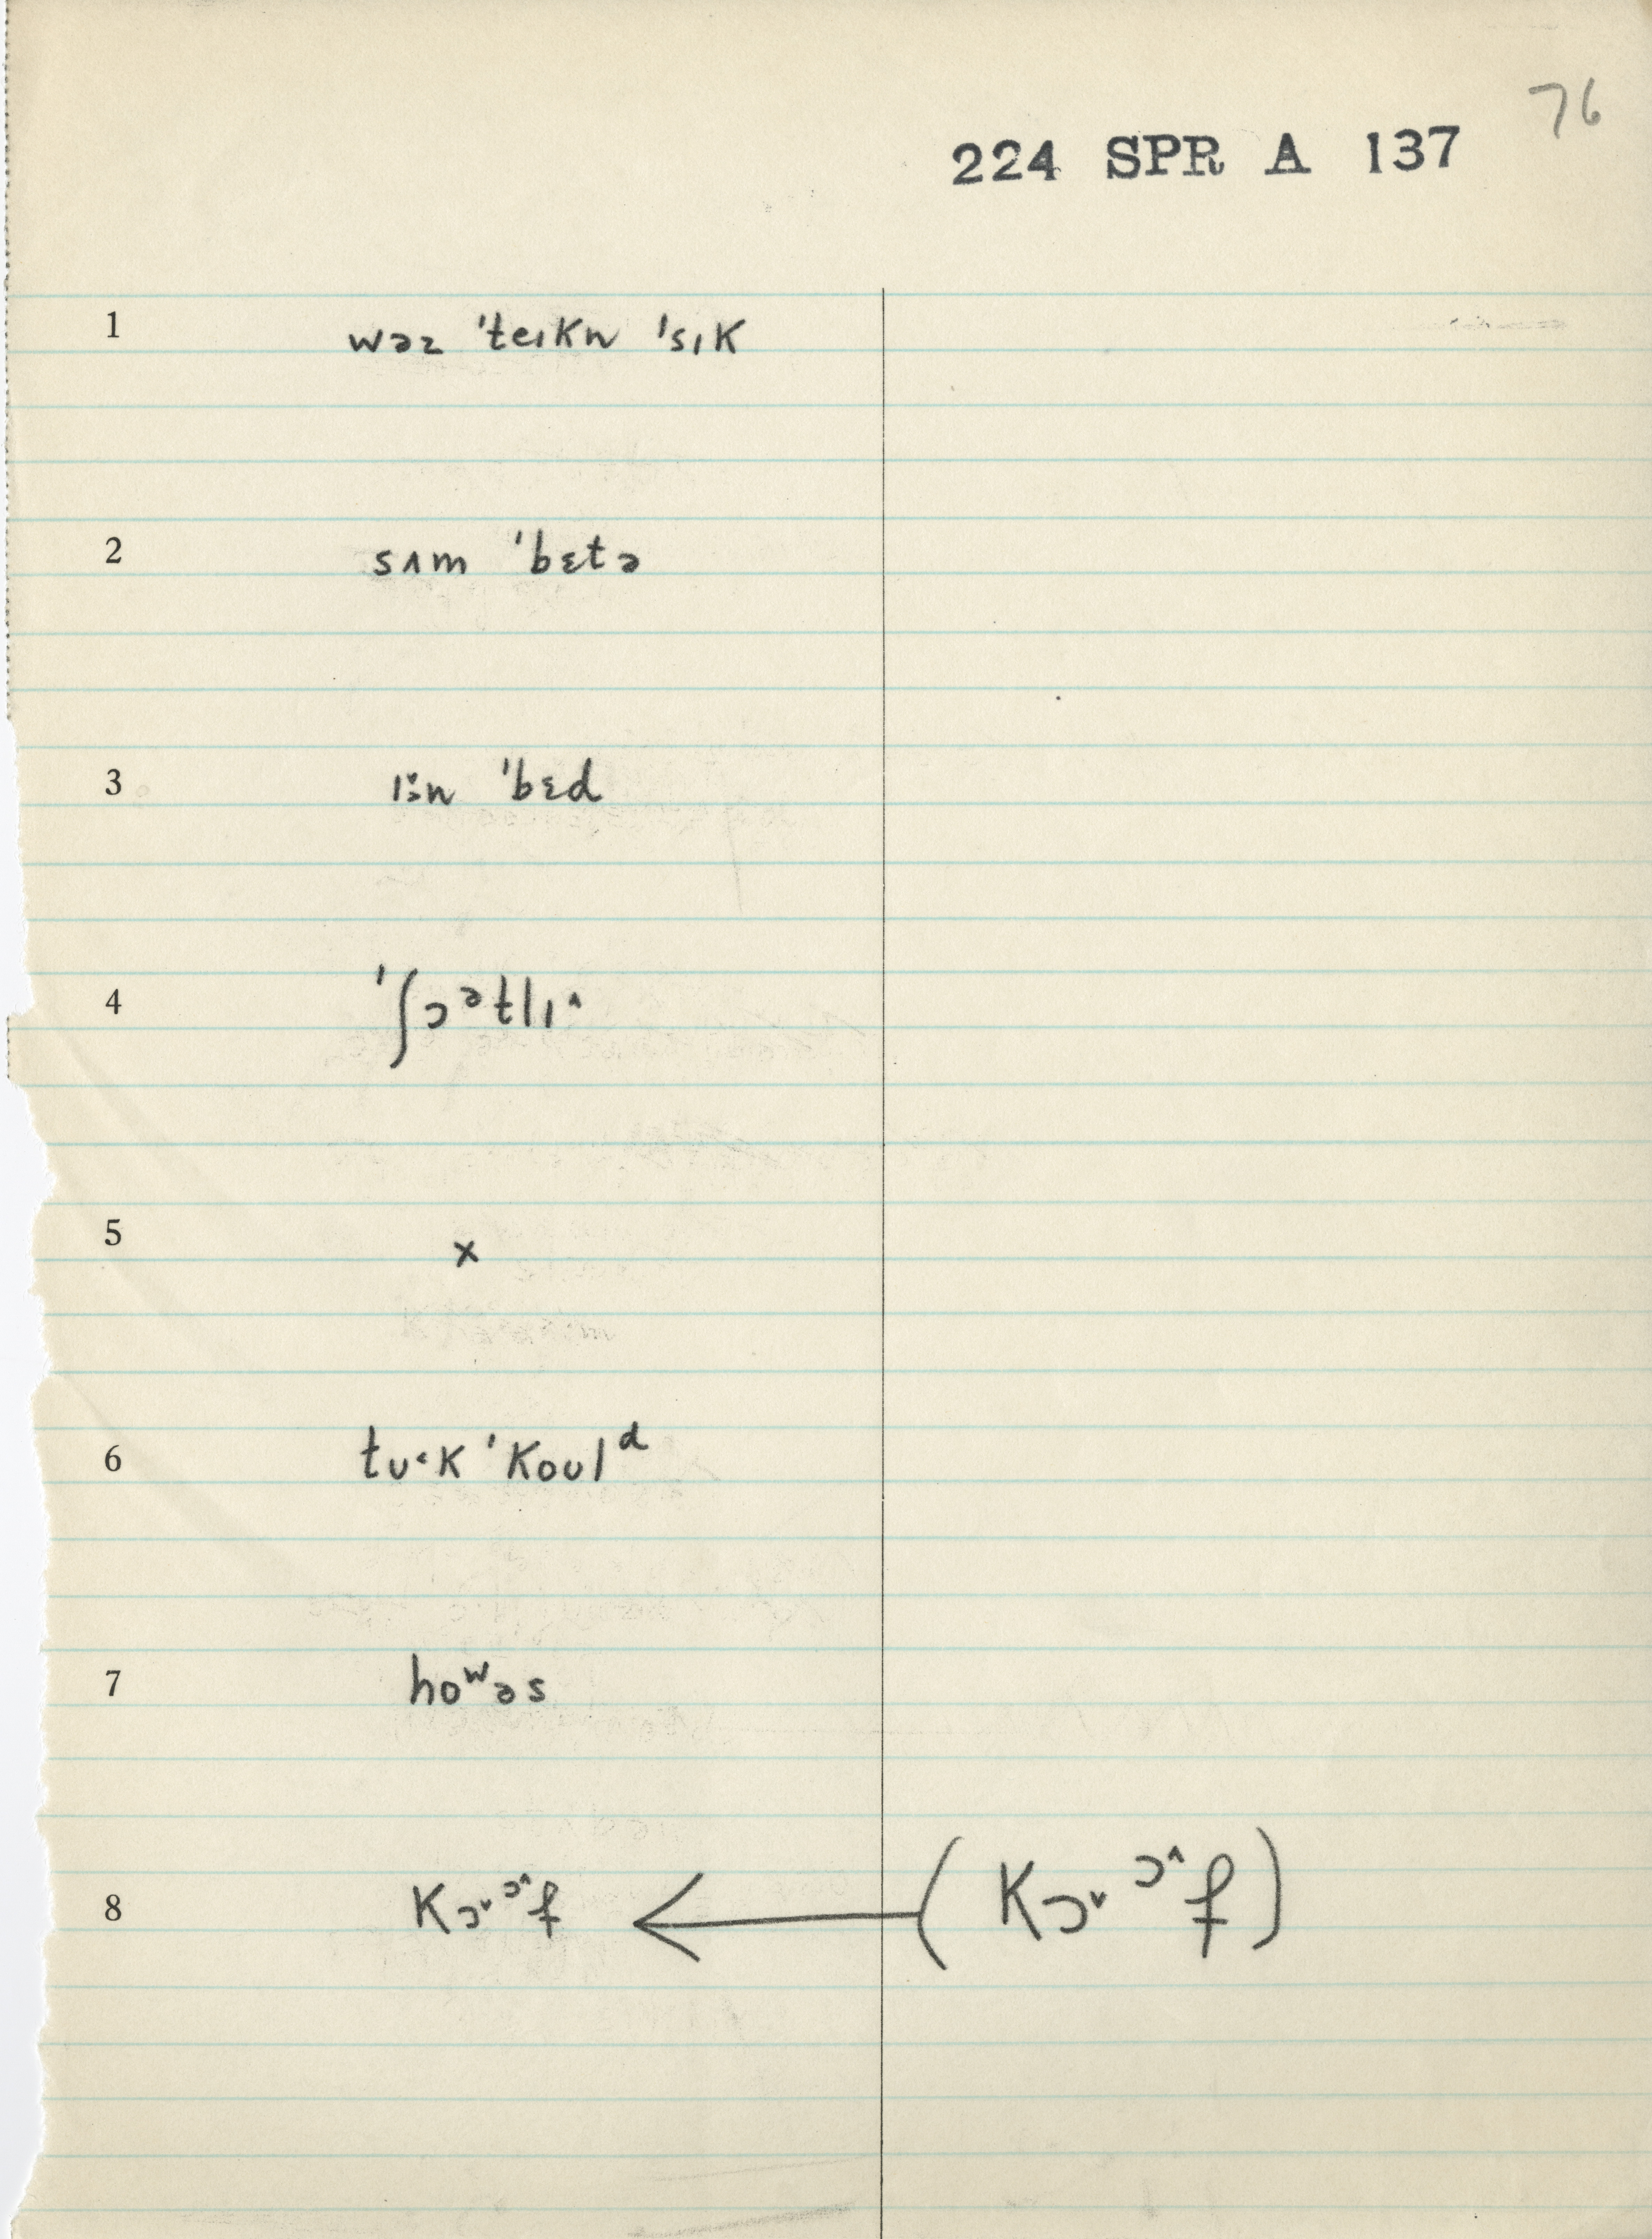 76
224 SPR A 137
1 wəz ˈteɪkn ˈsɪk
2 sʌm ˈbɛtə
3 ɪ˞n ˈbɛd
4 ˈʃɔᵊtlɪ˄
5 x
6 tʊ˂k ˈkoʊlᵈ
7 hoʷəs
8 kɔ˅ɔ˄f ← (kɔ˅ɔ˄f)